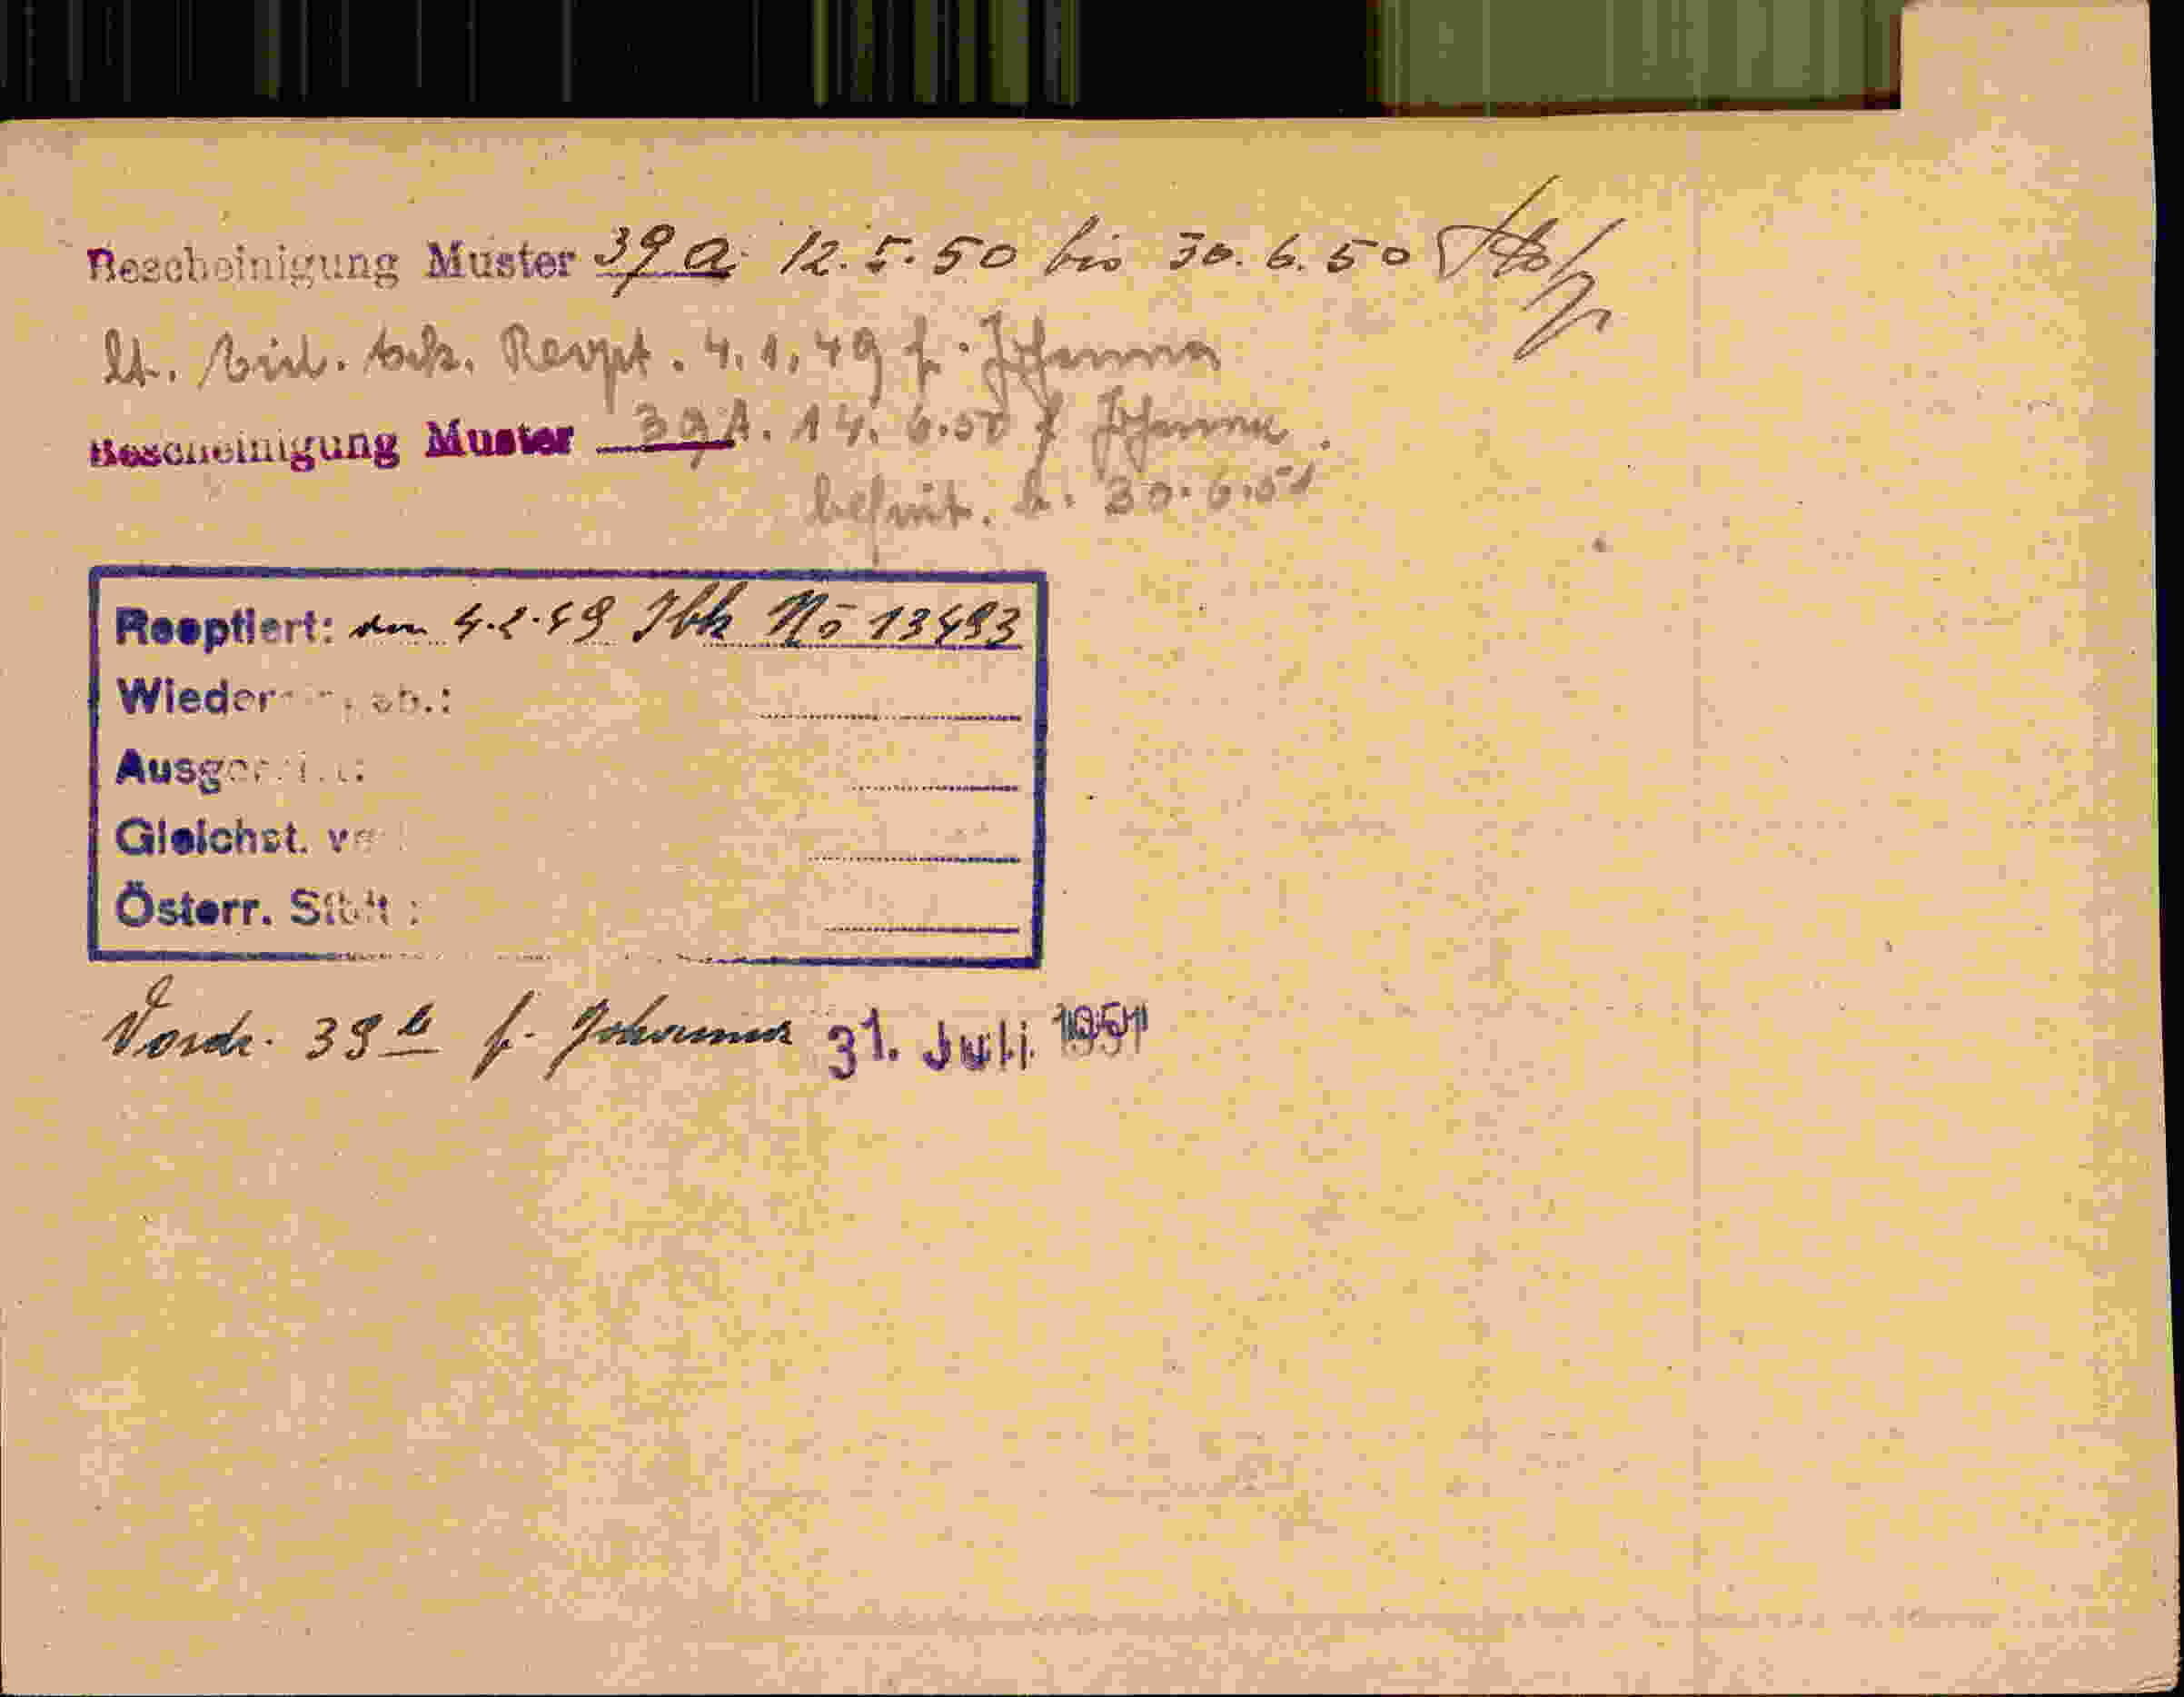 Bescheinigung Muster 39 a 12. 5. 50 bis 30. 6. 50
lt. Rept. 4. 1. 49 f. Johanna
Bescheinigung Muster 39 A. 14. 6. 50 f. Johanna.
befrist. b. 30. 6. 51
Reoptiert: den 4. 2. 49 Ibk No 13493
Wieder ab.:
Ausger
Gleichst.
Österr. Stbk:
Vordr. 39 b f. Johanna 31. Juli 1951